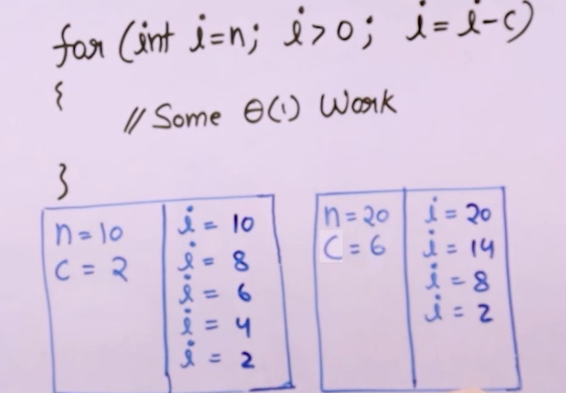 for (int i=n; i>0; i=i-c)
{
// Some Θ(1) Work
}
n=10
C = 2
i = 10
i = 8
i = 6
i = 4
i = 2
n=20
C = 6
i = 20
i = 14
i = 8
i = 2